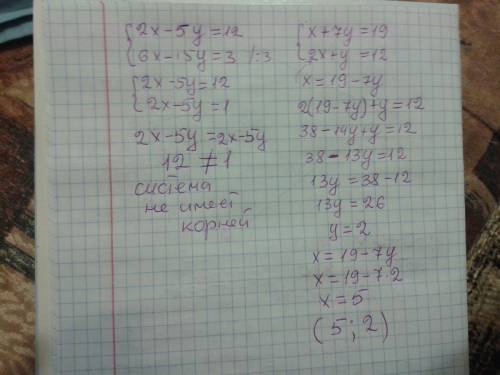 {2x-5y=12
{6x-15y=3 |:3
{2x-5y=12
{2x-5y=1
2x-5y=2x-5y
12≠1
система
не имеет
корней
{x+7y=19
{2x+y=12
x=19-7y
2(19-7y)+y=12
38-14y+y=12
38-13y=12
13y=38-12
13y=26
y=2
x=19-7y
x=19-7·2
x=5
(5;2)